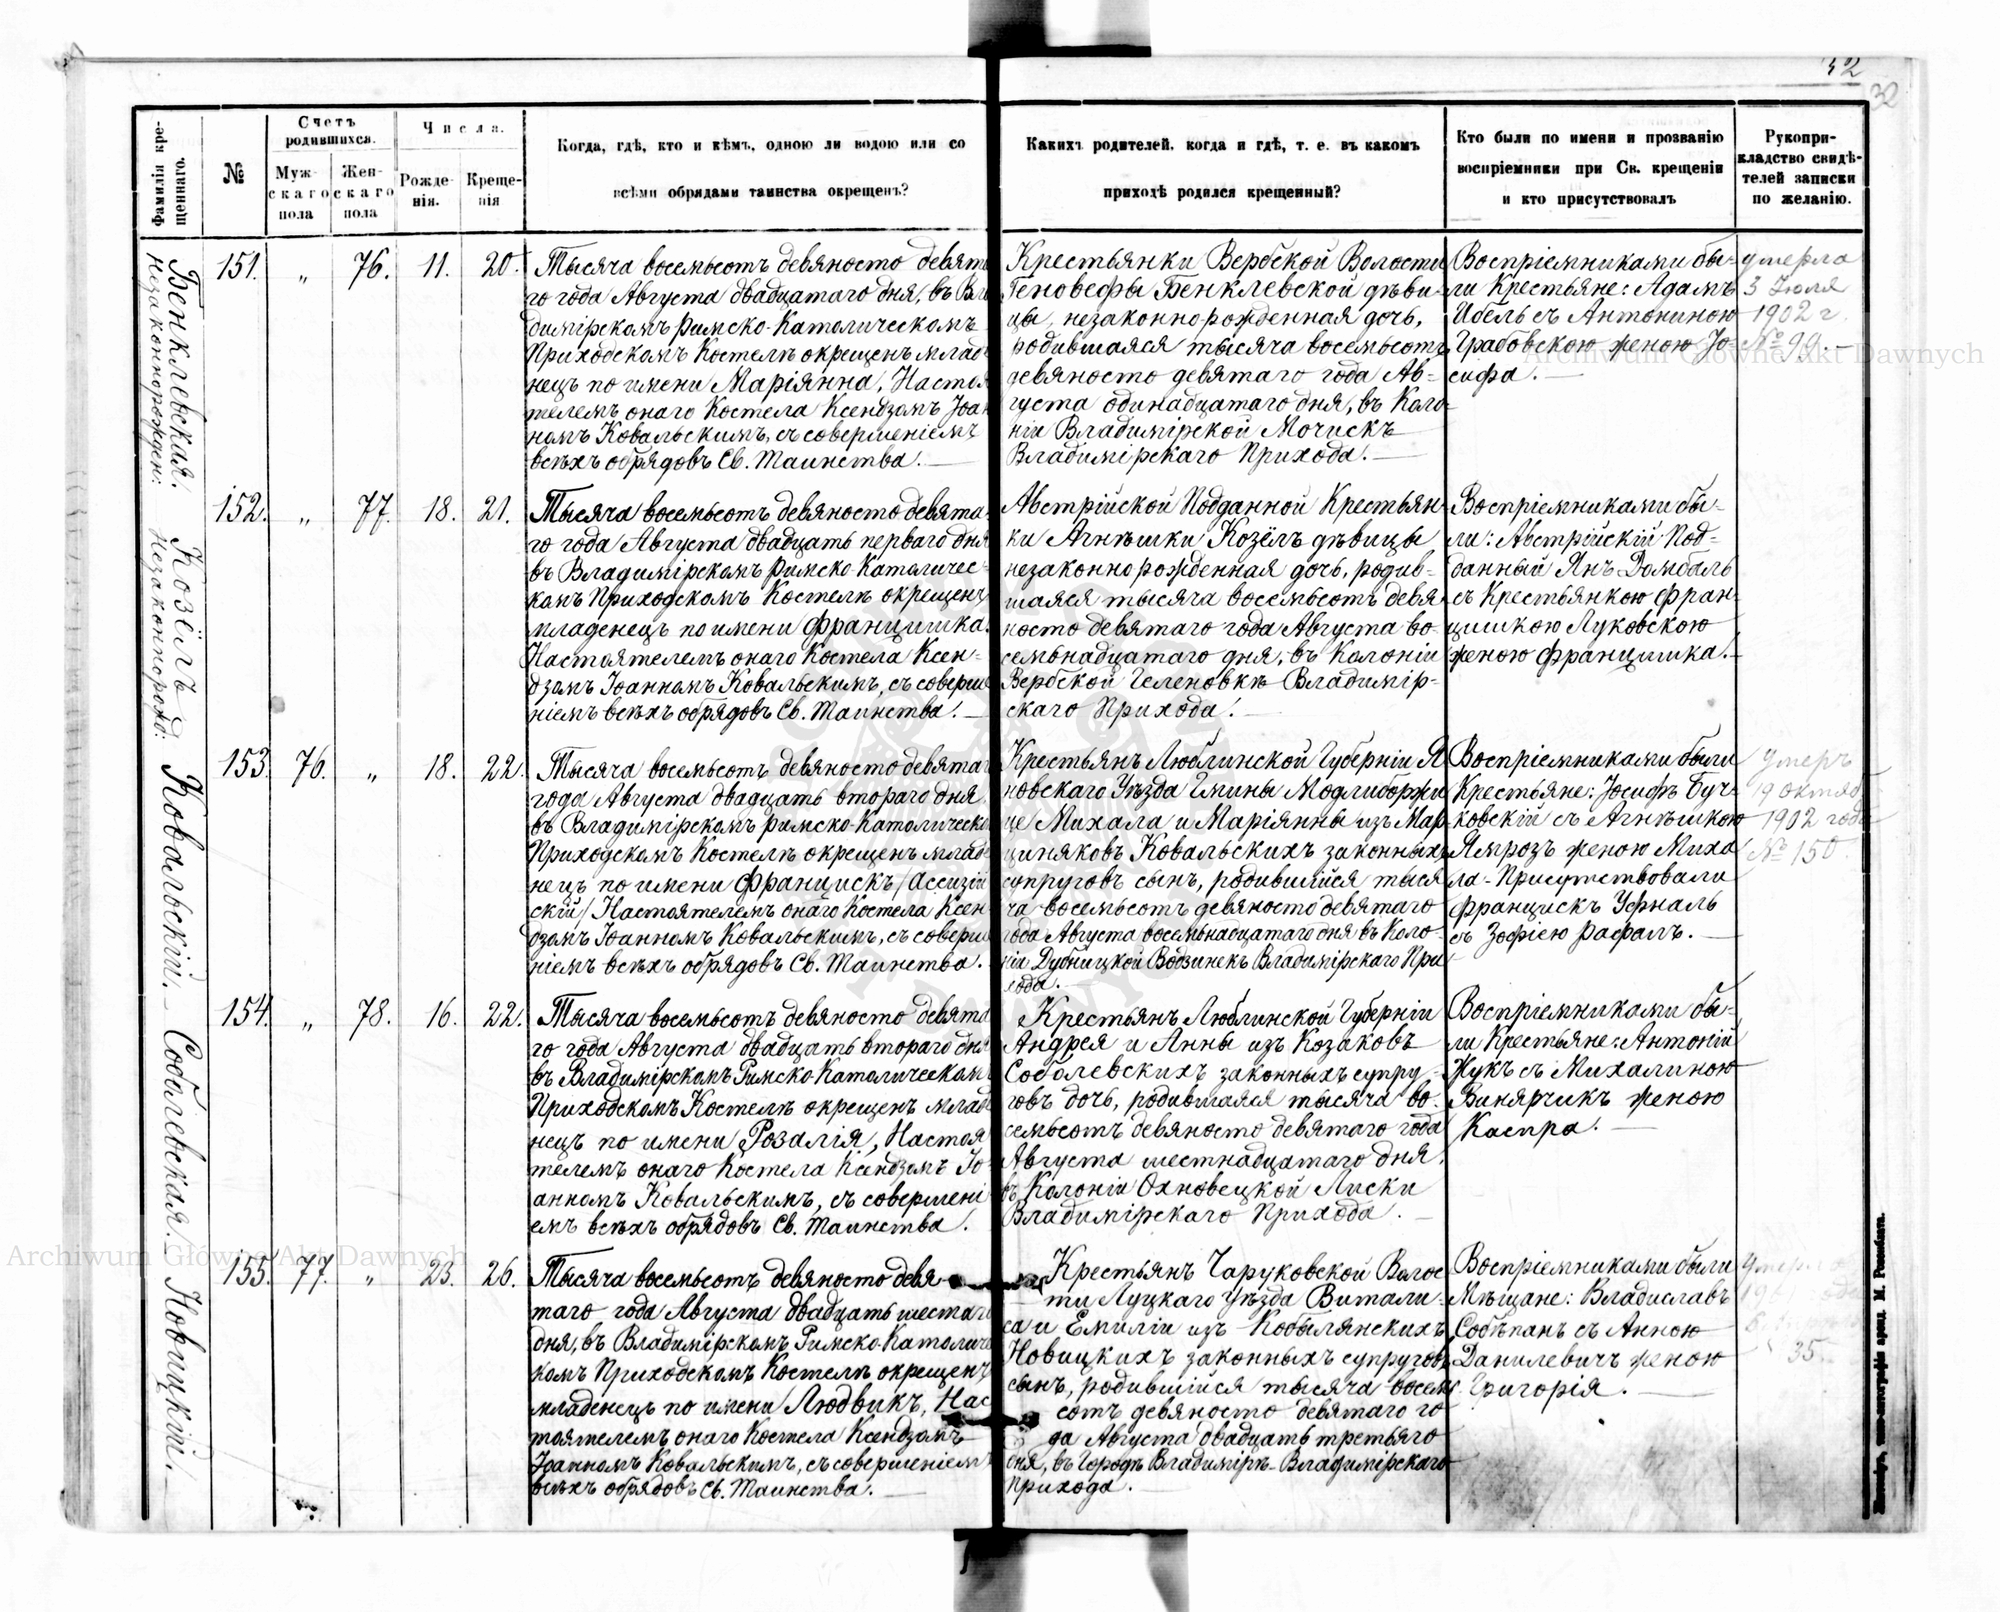 52
32
Фамилія кре-
щеннаго.
№
Счетъ
родившихся.
Муж-
скаго
пола
Жен-
скаго
пола
Числа.
Рожде-
нія.
Креще-
нія
Когда, гдѣ, кто и кѣмъ, одною ли водою или со
всѣми обрядами таинства окрещенъ?
Какихъ родителей, когда и гдѣ, т. е. въ какомъ
приходѣ родился крещенный?
Кто были по имени и прозванію
воспріемники при Св. крещеніи
и кто присутствовалъ
Рукопри-
кладство свидѣ-
телей записки
по желанію.
Бенклевская.
незаконнорожден:
151.
„
76.
11.
20.
Тысяча восемьсотъ девяносто девята
го года Августа двадцатаго дня, въ Вла
димірскомъ Римско-Католическомъ
Приходскомъ Костелѣ окрещенъ младе
нецъ по имени Маріянна, Настоя
телемъ онаго Костела Ксендзомъ Іоан
номъ Ковальскимъ, съ совершеніемъ
всѣхъ обрядовъ Св. Таинства.
Крестьянки Вербской Волости
Геновефы Бенклевской дѣви-
цы, незаконнорожденная дочь,
родившаяся тысяча восемьсотъ
девяносто девятаго года Ав-
густа одинадцатаго дня, въ Коло-
ніи Владимірской Мочискъ
Владимірскаго Прихода.
Воспріемниками бы-
ли Крестьяне: Адамъ
Ибель съ Антониною
Грабовскою женою Іо-
сифа.
умерла
3 Іюля
1902 г.
№ 99.
Козёлъ
незаконнорожд:
152.
„
77.
18.
21.
Тысяча восемьсотъ девяносто девята-
го года Августа двадцать перваго дня
въ Владимірскомъ Римско-Католичес-
комъ Приходскомъ Костелѣ окрещенъ
младенецъ по имени Францишка.
Настоятелемъ онаго Костела Ксен-
дзомъ Іоанномъ Ковальскимъ, съ соверше
ніемъ всѣхъ обрядовъ Св. Таинства.
Австрійской Подданной Крестьян-
ки Агнѣшки Козёлъ дѣвицы
незаконнорожденная дочь, родив-
шаяся тысяча восемьсотъ девя-
носто девятаго года Августа во-
семьнадцатаго дня, въ Колоніи
Вербской Геленовкѣ Владимір-
скаго Прихода.
Воспріемниками бы-
ли: Австрійскій Под-
данный Янъ Домбаль
съ Крестьянкою Фран-
цишкою Луковскою
женою Францишка.
Ковальскій.
153.
76.
„
18.
22.
Тысяча восемьсотъ девяносто девятаго
года Августа двадцать втораго дня
въ Владимірскомъ Римско-Католическо
Приходскомъ Костелѣ окрещенъ младе
нецъ по имени Францискъ /Ассизій
скій/ Настоятелемъ онаго Костела Ксен
дзомъ Іоанномъ Ковальскимъ, съ соверше
ніемъ всѣхъ обрядовъ Св. Таинства.
Крестьянъ Люблинской Губерніи Я
новскаго Уѣзда Гмины Модлиборжи
це Михала и Маріянны изъ Мар-
циняковъ Ковальскихъ законныхъ
супруговъ сынъ, родившійся тыся
ча восемьсотъ девяносто девятаго
года Августа восемьнадцатаго дня въ Коло-
ніи Дубницкой Водзинекъ Владимірскаго При
хода.
Воспріемниками были
Крестьяне: Іосифъ Буч-
ковскій съ Агнѣшкою
Ямрозъ женою Миха
ла - Присутствовали
Францискъ Уфналь
съ Зофіею Рафалъ.
Умеръ
19 Октяб
1902 года
№ 150.
Собилевская.
154.
„
78.
16.
22.
Тысяча восемьсотъ девяносто девята
го года Августа двадцать втораго дня
въ Владимірскомъ Римско-Католическомъ
Приходскомъ Костелѣ окрещенъ младе
нецъ по имени Розалія, Настоя
телемъ онаго Костела Ксендзомъ Іо
анномъ Ковальскимъ, съ совершені
емъ всѣхъ обрядовъ Св. Таинства.
Крестьянъ Люблинской Губерніи
Андрея и Анны изъ Козаковъ
Соболевскихъ законныхъ супру-
говъ дочь, родившаяся тысяча во-
семьсотъ девяносто девятаго года
Августа шестнадцатаго дня,
въ Колоніи Охновецкой Лиски
Владимірскаго Прихода.
Воспріемниками бы-
ли Крестьяне: Антоній
Жукъ съ Михалиною
Винярчикъ женою
Каспра.
Новицкій.
155.
77.
„
23.
26.
Тысяча восемьсотъ девяносто девя-
таго года Августа двадцать шестаго
дня, въ Владимірскомъ Римско-Католиче
комъ Приходскомъ Костелѣ окрещенъ
младенецъ по имени Людвикъ, Нас
тоятелемъ онаго Костела Ксендзомъ
Іоанномъ Ковальскимъ, съ совершеніемъ
всѣхъ обрядовъ Св. Таинства.
Крестьянъ Чаруковской Волос
ти Луцкаго Уѣзда Витали-
са и Емиліи изъ Кобылянскихъ
Новицкихъ законныхъ супруговъ
сынъ, родившійся тысяча восем
сотъ девяносто девятаго го
да Августа двадцать третьяго
дня, въ Городѣ Владимірѣ-Владимірскаго
Прихода.
Воспріемниками были
Мѣщане: Владиславъ
Собѣпанъ съ Анною
Данилевичъ женою
Григорія.
35
Archiwum Główne Akt Dawnych
Archiwum Główne Akt Dawnych